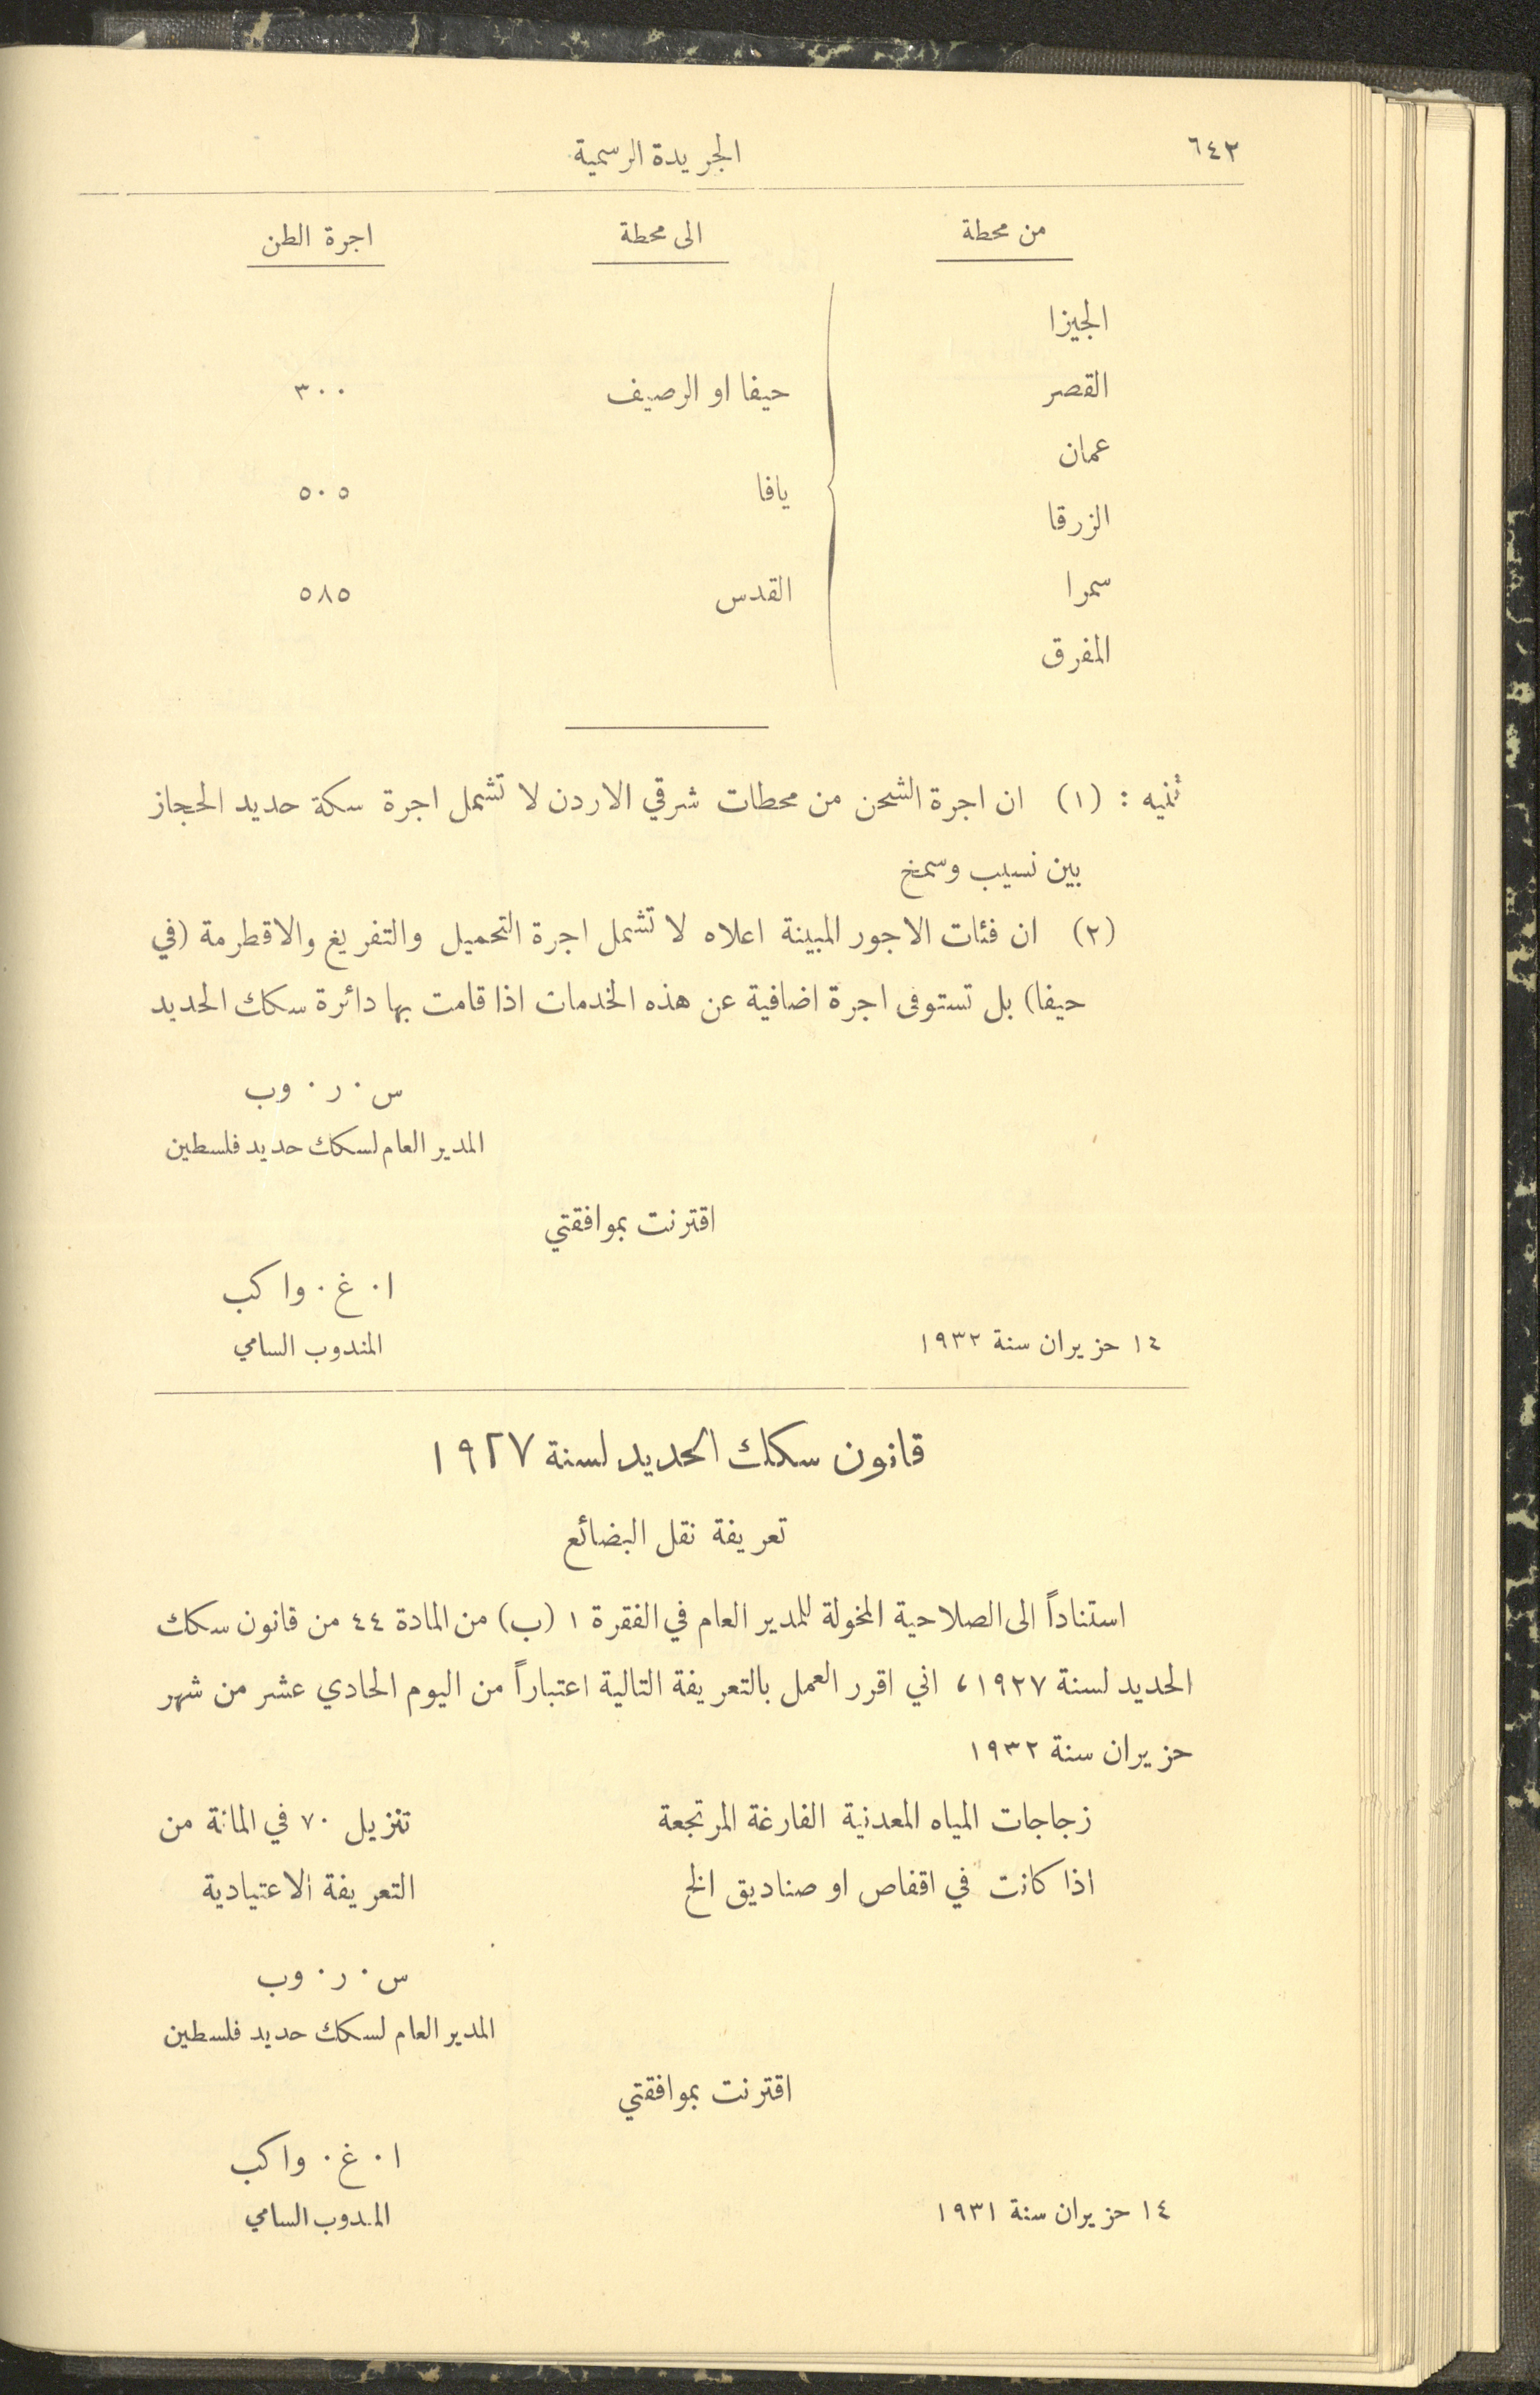 ٦٤٢
الجريدة الرسمية
من محطة الى محطة اجرة الطن
الجيزا
القصر
حيفا او الرصيف ٣٠٠
عمان
يافا ٥٠٥
الزرقا
سمرا
القدس ٥٨٥
المفرق
تنبيه : (١) ان اجرة الشحن من محطات شرقي الاردن لا تشمل اجرة سكة حديد الحجاز
بين نسيب وسمخ
(٢) ان فئات الاجور المبينة اعلاه لا تشمل اجرة التحميل والتفريغ والاقطرمة (في
حيفا) بل تستوفى اجرة اضافية عن هذه الخدمات اذا قامت بها دائرة سكك الحديد
س . ر . وب
المدير العام لسكك حديد فلسطين
اقترنت بموافقتي
ا . غ . واكب
١٤ حزيران سنة ١٩٣٢ المندوب السامي
قانون سكك الحديد لسنة ١٩٢٧
تعريفة نقل البضائع
استناداً الى الصلاحية المخولة للمدير العام في الفقرة ١ (ب) من المادة ٤٤ من قانون سكك
الحديد لسنة ١٩٢٧، اني اقرر العمل بالتعريفة التالية اعتباراً من اليوم الحادي عشر من شهر
حزيران سنة ١٩٣٢
زجاجات المياه المعدنية الفارغة المرتجعة تنزيل ٧٠ في المائة من
اذا كانت في اقفاص او صناديق الخ التعريفة الاعتيادية
س . ر . وب
المدير العام لسكك حديد فلسطين
اقترنت بموافقتي
ا . غ . واكب
١٤ حزيران سنة ١٩٣١ المندوب السامي